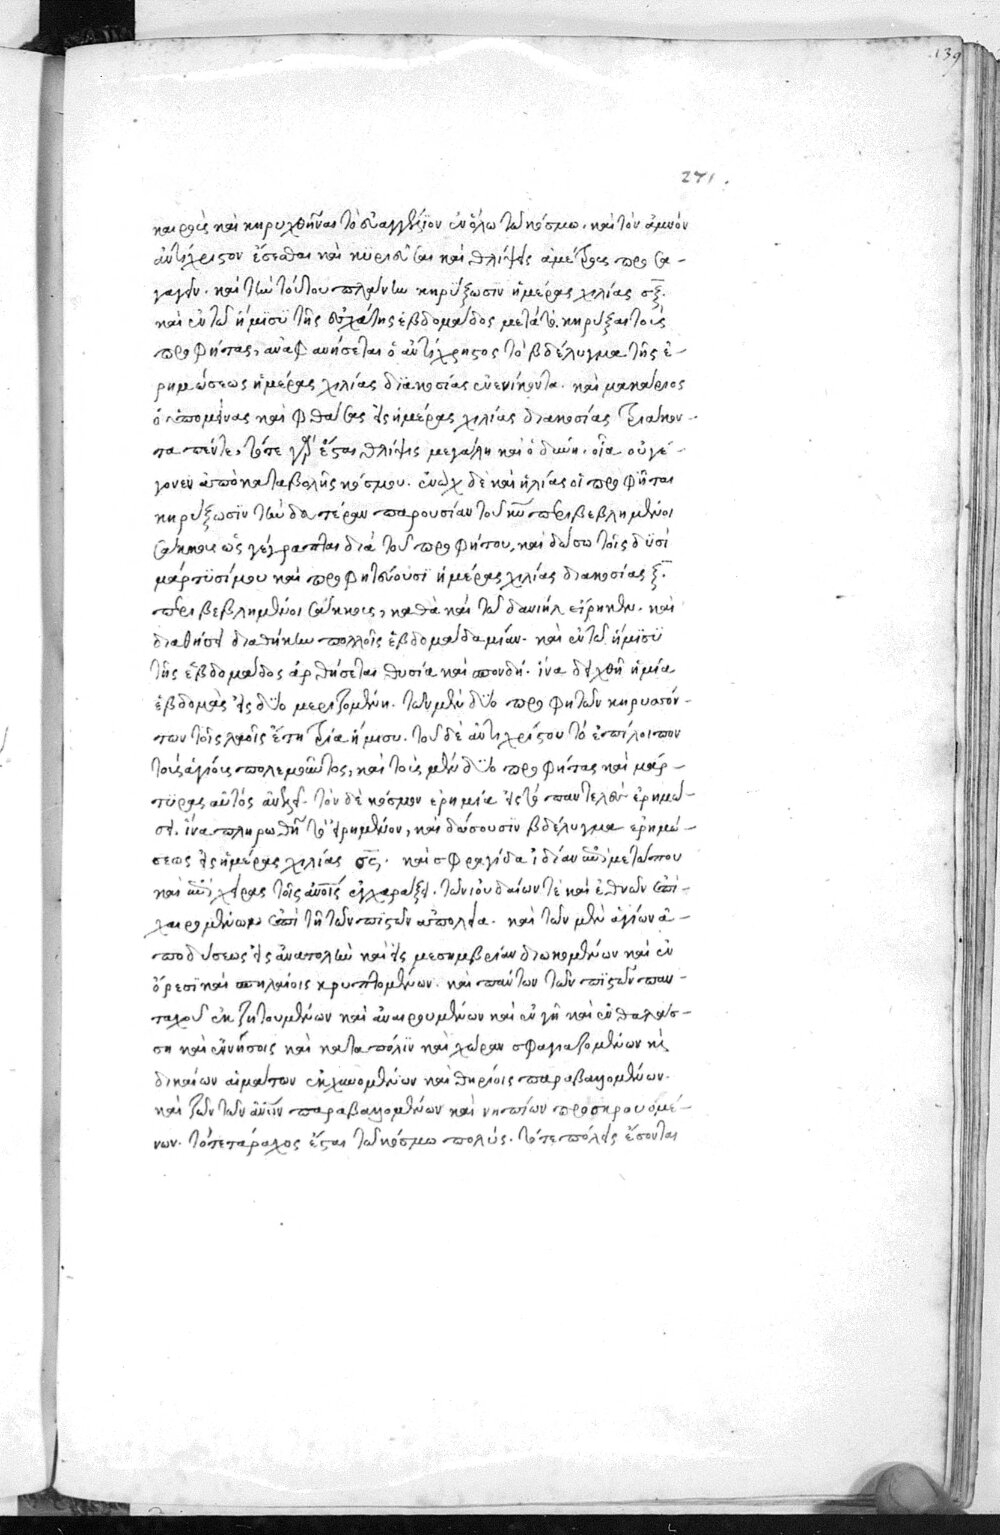 139
271.
καιροὺς καὶ κηρυχθῆναι τὸ εὐαγγέλϊον ἐν ὅλω τῶ κόσμω. καὶ τὸν ἀμνὸν
ἀντίχριστον ἔσεσθαι καὶ κϋριεῦσαι καὶ θλίψεις ἀμέτρους προσα-
γαγεῖν. καὶ τὴν τούτου πλάνην κηρύξωσϊν ἡμέρας χιλίας σξ.
καὶ ἐν τῶ ἡμίσϋ τῆς ἐσχάτης ἑβδομάδος μετὰ τὸ κηρύξαι τοὺς
προφήτας, ἀναφανήσεται ὁ ἀντίχρηστος τὸ βδέλυγμα τῆς ἐ-
ρημώσεως ἡμέρας χιλίας διακοσίας ἐνενίκοντα. καὶ μακάριος
ὁ ὑπομείνας καὶ φθάσας εἰς ἡμέρας χιλίας διακοσίας τριάκον-
τα πέντε, τότε γὰρ ἔσται θλίψις μεγάλη καὶ ὀδύνη. οἵα οὐ γέ-
γονεν ἀπὸ καταβολῆς κόσμου. ἐνὼχ δὲ καὶ ἡλίας οἱ προφῆται
κηρύξωσϊν τὴν δευτέραν παρουσίαν τοῦ κυ περιβεβλημένοι
σάκκους ὡς γέγραπται διὰ τοῦ προφήτου, καὶ δώσω τοῖς δϋσὶ
μάρτϋσί μου καὶ προφητεύουσϊ ἡμέρας χιλίας διακοσίας ξ.
περιβεβλημένοι σάκκους, καθὰ καὶ τῶ δανιὴλ εἴρηκεν. καὶ
διαθήσει διαθήκην πολλοῖς ἑβδομάδα μίαν. καὶ ἐν τῶ ἡμίσϋ
τῆς ἑβδομάδος ἀρθήσεται θυσία καὶ σπονδή. ἵνα δειχθῆ ἡ μία
ἑβδομὰς εἰς δύο μεριζομένη. τῶν μὲν δύο προφητῶν κηρυσσόν-
των τοῖς λαοῖς ἔτη τρία ἥμισυ. τοῦ δὲ ἀντιχρίστου τὸ ἐπίλοιπον
τοὺς ἁγίους πολεμοῦντος, καὶ τοὺς μὲν δύο προφήτας καὶ μάρ-
τϋρας αὐτὸς ἀνελεῖ. τὸν δὲ κόσμον ἐρημία εἰς τὸ παντελὲς ἐρημώ-
σει. ἵνα πληρωθῆ τὸ εἰρημένον, καὶ δώσουσϊν βδέλυγμα ἐρημώ-
σεως εἰς ἡμέρας χιλίας σς. καὶ σφραγίδα ἰδίαν ἐπὶ μετώπου
καὶ ἐπὶ χεῖρας τοῖς ἀνοις ἐγχαράξει. τῶν ἰουδαίων τὲ καὶ ἐθνῶν ἐπι-
χαιρομένων ἐπὶ τῆ τῶν πιστῶν ἀπολεία. καὶ τῶν μὲν ἁγίων ἀ-
πο δύσεως εἰς ἀνατολὴν καὶ εἰς μεσημβρίαν διωκομένων καὶ ἐν
ὄρεσϊ καὶ σπηλαίοις κρυπτομένων. καὶ πάντων τῶν πϊστῶν παν-
ταχοῦ ἐκζητουμένων καὶ ἀναιρουμένων καὶ ἐν γῆ καὶ ἐν θαλάσ-
ση καὶ ἐν νήσοις καὶ κατὰ πόλϊν καὶ χώραν σφαγιαζομένων καὶ
δικαίων αἱμάτων ἐκχυνομένων καὶ θηρίοις παραβαλλομένων.
καὶ ζώντων ἀνων παραβαλλομένων καὶ νηπίων προσκρουομέ-
νων. τότε τάραχος ἔσται τῶ κόσμω πολύς. τότε πόλεις ἔσονται